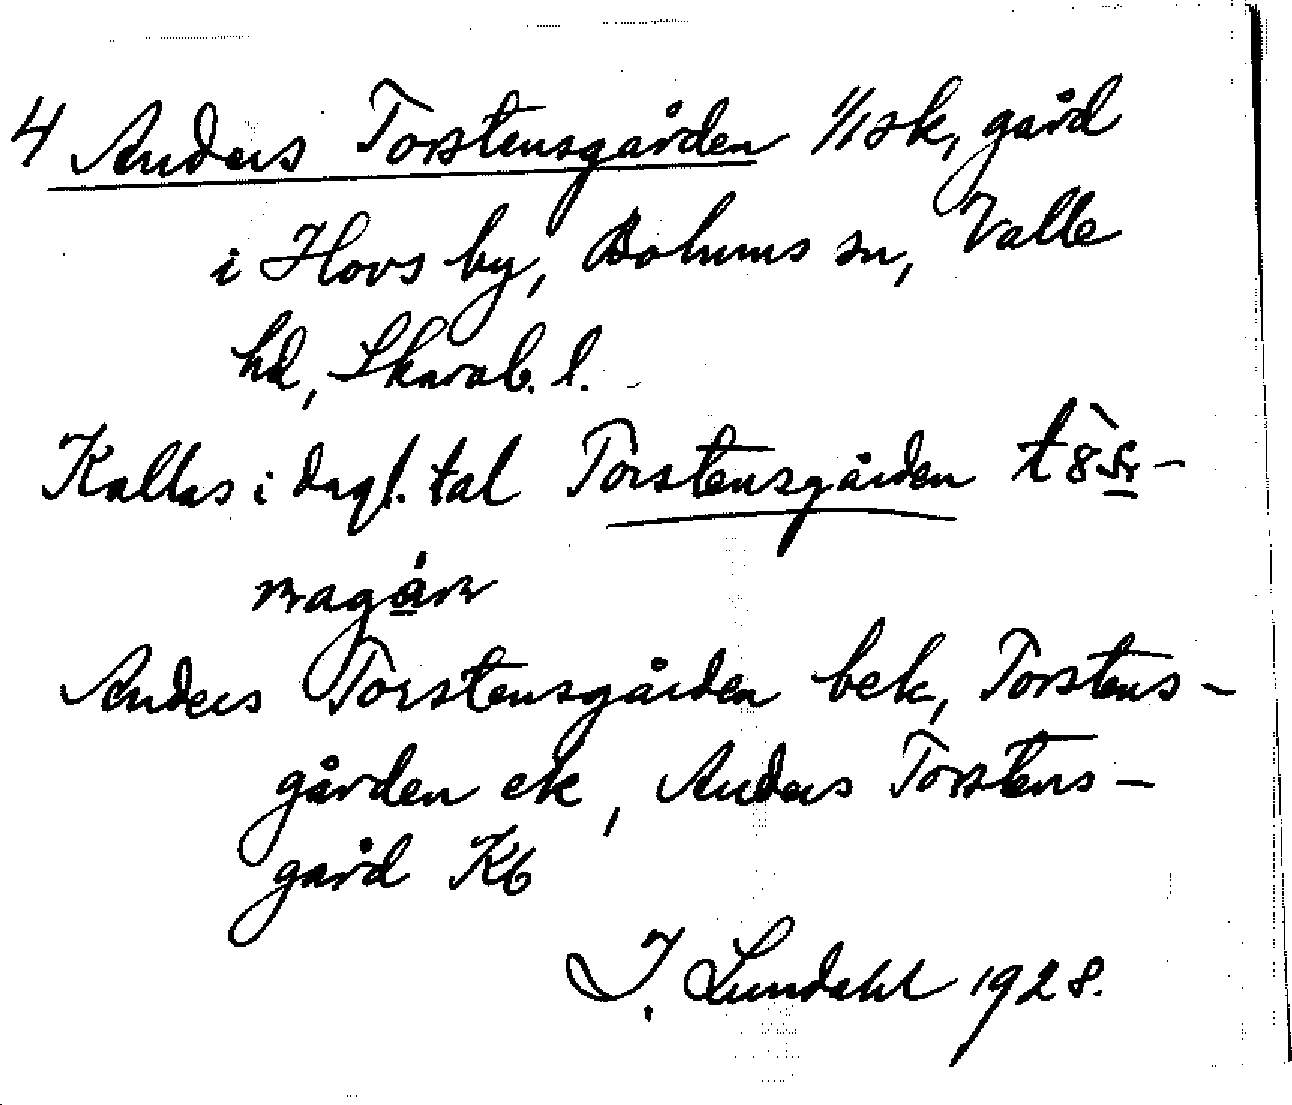 4 Anders Torstensgården 1/1 sk, gård
i Hovs by, Bolums sn, Valle
hd, Skarab. l.
Kallas i dagl. tal Torstensgården
Anders Torstensgården bek, Torstens-
gården ek, Anders Torstens-
gård Kb
I. Lundahl 1928.